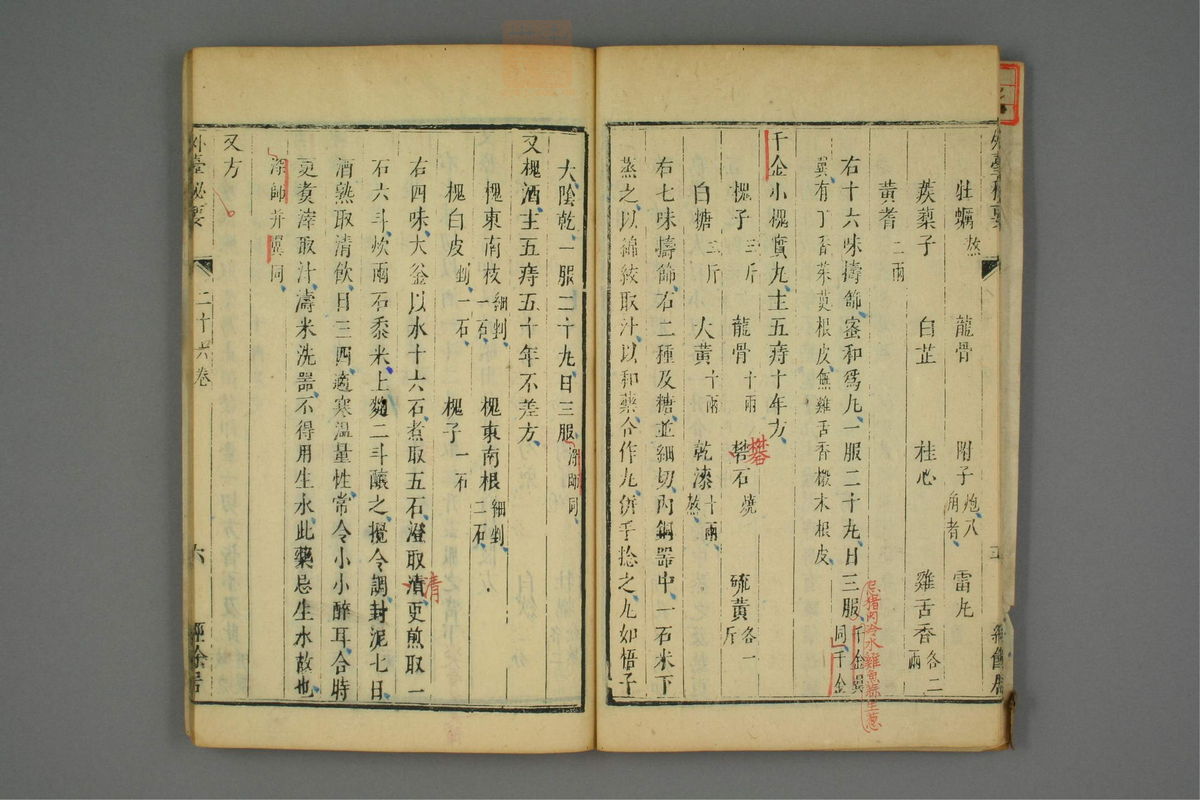 牡蠣熬 龍骨 附子炮八角者 雷丸
蒺䔧子 白芷 桂心 雞舌香各二兩
黃耆二兩
右十六味擣篩蜜和爲丸一服二十丸日三服千金翼同千金
翼有丁香茱萸根皮無雞舌香橡木根皮
忌猪肉冷水雞魚蒜生葱
千金小槐實丸主五痔十年方
槐子三斤 龍骨十兩 礬石燒 硫黃各一斤
礬
白糖二斤 大黃十兩 乾漆十兩熬
右七味擣篩右二種及糖並細切內銅器中一石米下
蒸之以綿絞取汁以和藥合作丸併手捻之丸如悟子
大陰乾一服二十丸日三服深師同
又槐酒主五痔五十年不差方
槐東南枝細剉一石 槐東南根細剉二石
槐白皮剉一石 槐子一石
右四味大釜以水十六石煮取五石澄取清更煎取一
清
石六斗炊兩石黍米上麴二斗釀之攪令調封泥七日
酒熟取清飲日三四適寒溫量性常令小小醉耳合時
更煮滓取汁濤米洗器不得用生水此藥忌生水故也
深師并翼同
又方
外臺秘要 二十六卷 六 經餘居